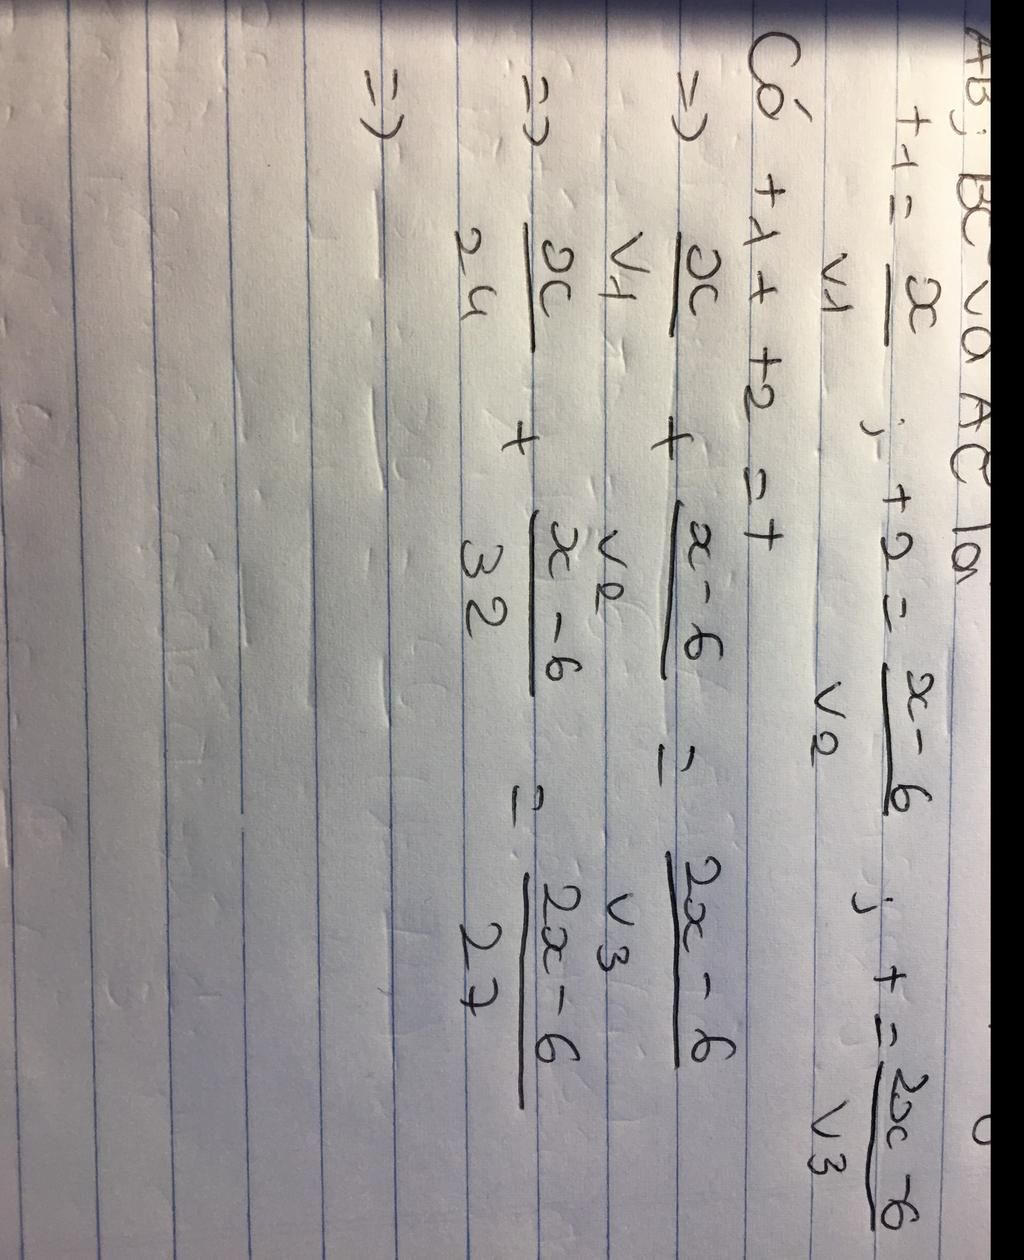 AB; BC và AC là
t1 = x/v1 ; t2 = x-6/v2 ; t = 2x-6/v3
Có t1 + t2 = t
=> x/v1 + x-6/v2 = 2x-6/v3
=> x/24 + x-6/32 = 2x-6/27
=>